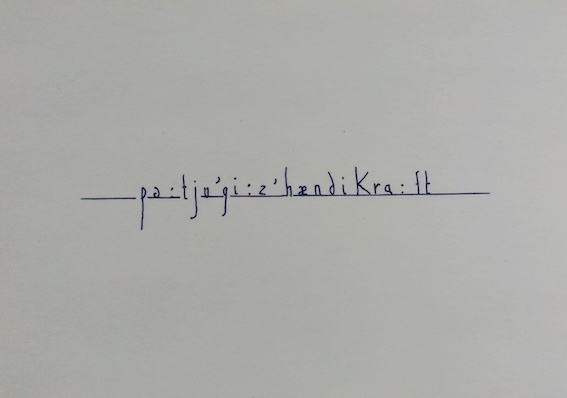 pə:tjʊ'gi:z'hændikra:ft